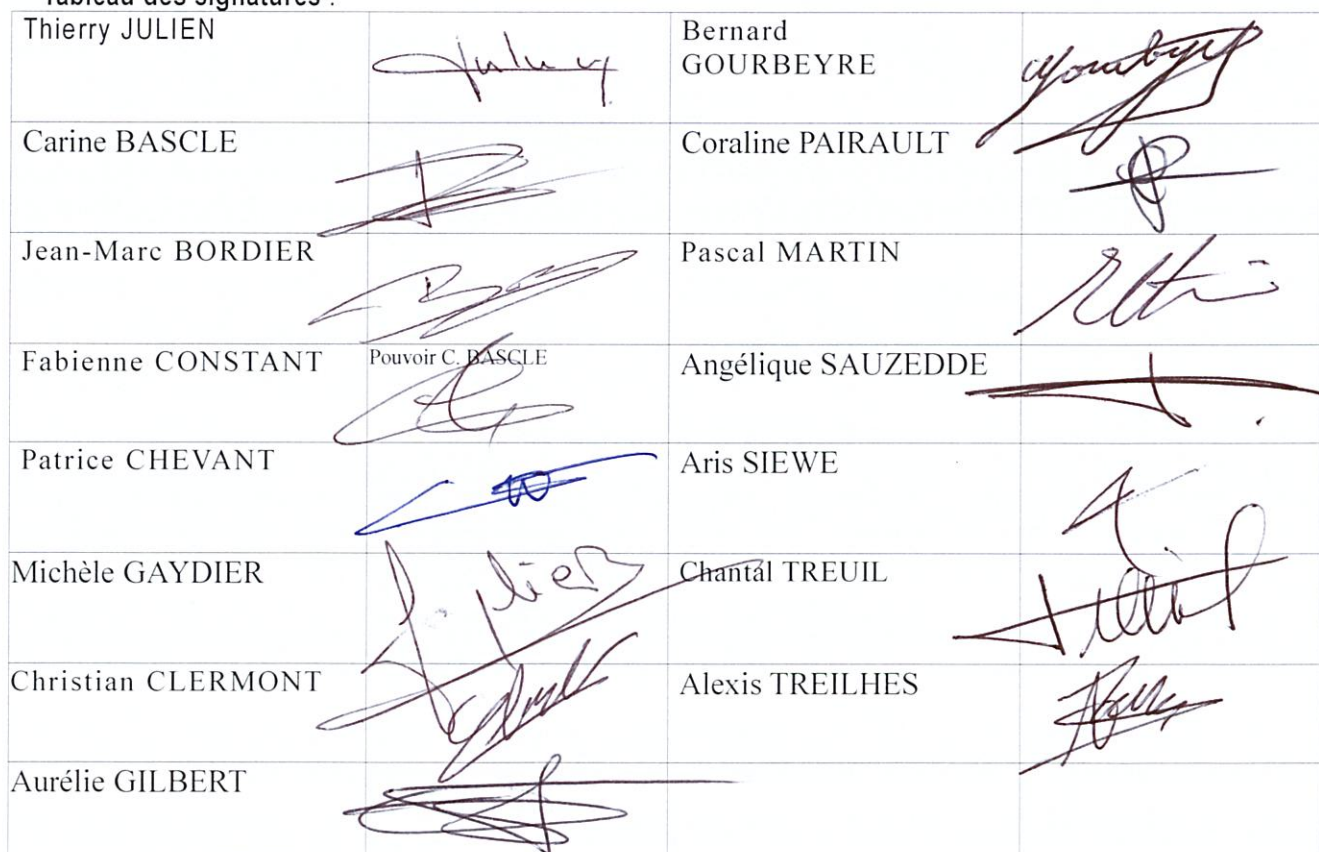 Tableau des signatures :
Thierry JULIEN
Bernard
GOURBEYRE
Carine BASCLE
Coraline PAIRAULT
Jean-Marc BORDIER
Pascal MARTIN
Fabienne CONSTANT
Pouvoir C. BASCLE
Angélique SAUZEDDE
Patrice CHEVANT
Aris SIEWE
Michèle GAYDIER
Chantal TREUIL
Christian CLERMONT
Alexis TREILHES
Aurélie GILBERT